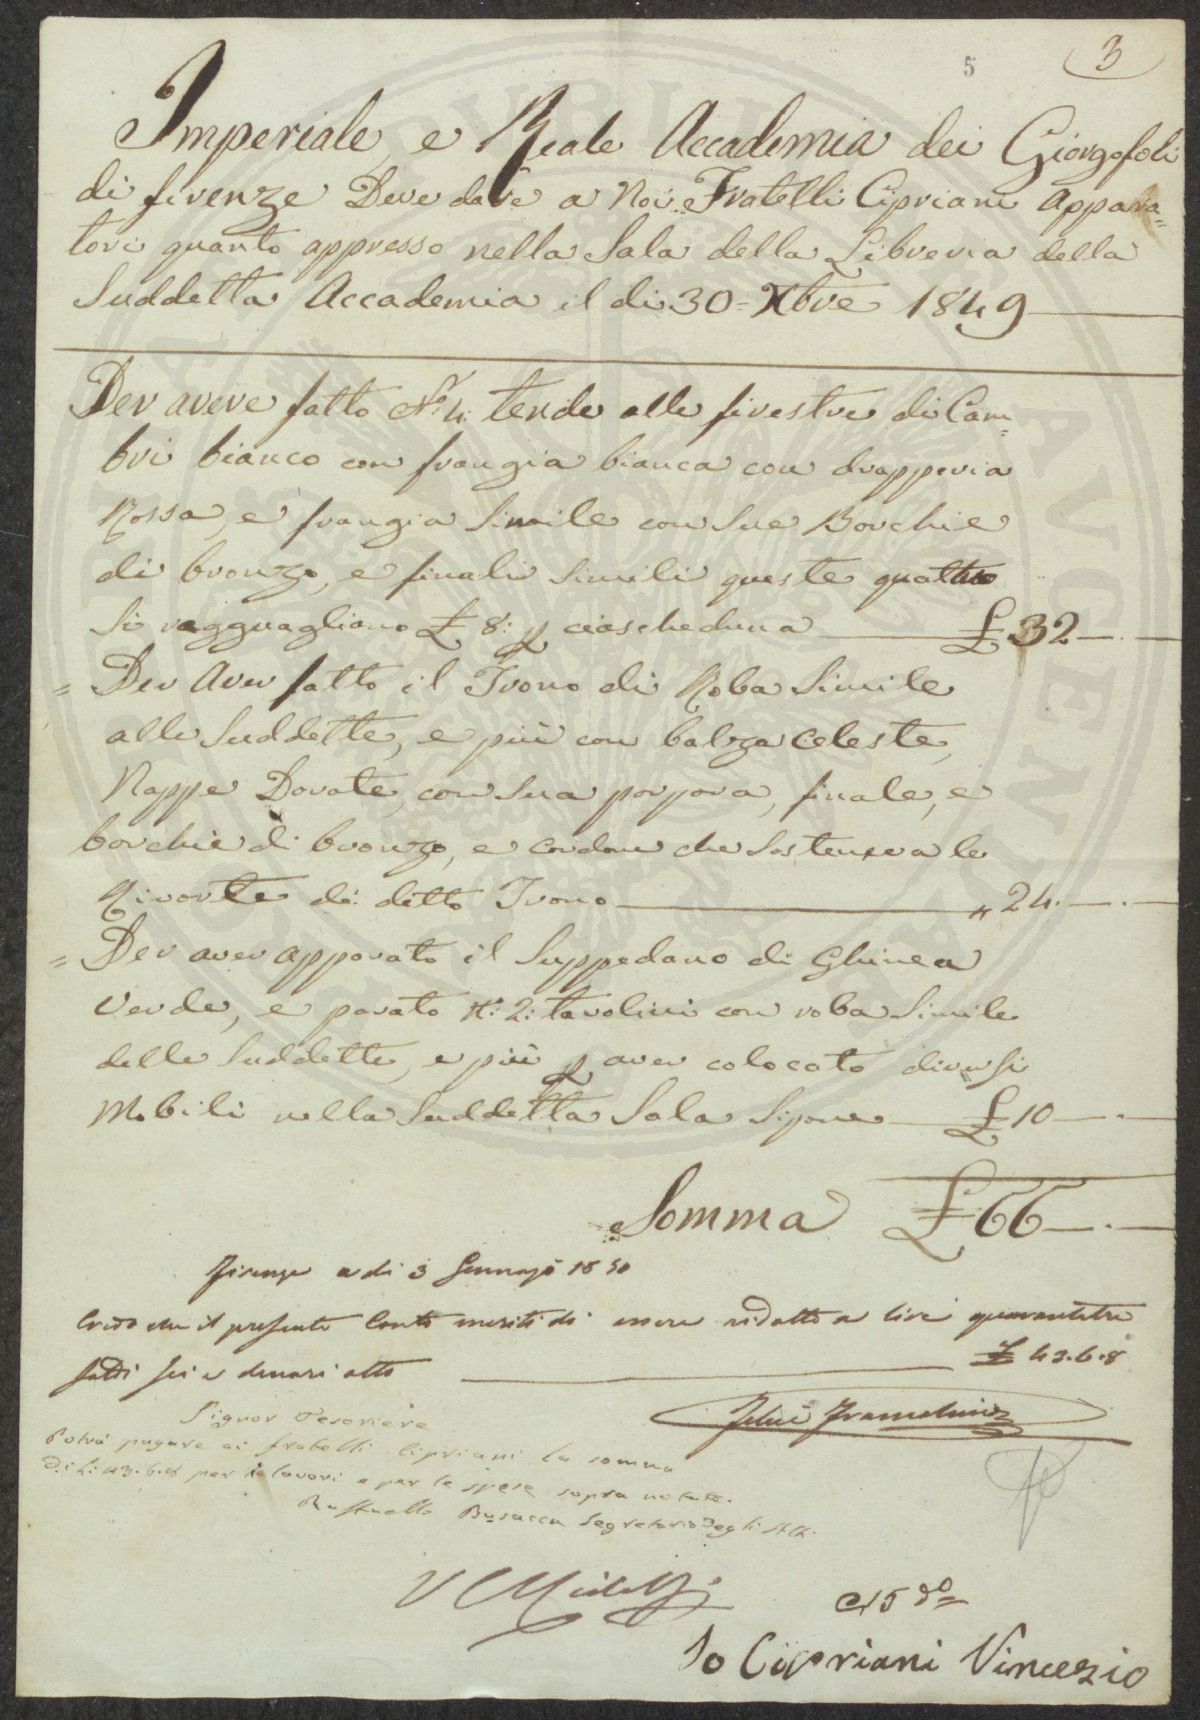 5
3
Imperiale, e Reale Accademia dei Giorgofoli
di firenze Deve dare a Noi Fratelli Cipriani Appara=
tori quanto appresso nella Sala della Libreria della
Suddetta Accademia il di 30 = Xbre 1849
Per avere fatto N°. 4: tende alle finestre di Cam=
bri bianco con frangia bianca con drapperia
Rossa, e frangia Simile con Sue Borchie
di bronzo, e finali Simili queste quattro
Si ragguagliano £ 8: p ciascheduna £ 32
= Per Aver fatto il Trono di Roba Simile
alle Suddette, e più con balza Celeste,
Nappe Dorate, con Sua porpora, finale, e
borchie di bronzo, e Cordone che Sosteneva le
Rivolte di ditto Trono " 24.
= Per aver apparato il Suppedano di Ghinea
Verde, e parato N: 2: tavolini con roba Simile
delle Suddette, e più p aver colocato diversi
Mobili nella Suddetta Sala Sipone £ 10
Somma £ 66
Firenze a di 3 Gennajo 1850
Credo che il presente Conto meriti di essere ridotto a lire quarantatre
soldi sei e denari otto £ 43.6.8
Felice Francolini
Signor Tesoriere
Potrà pagare ai fratelli Cipriani la somma
di L: 43.6.8 per i lavori e per le spese sopra notate.
Raffaello Busacca Segretario degli Atti.
A 15 do=
Io Cipriani Vincezio